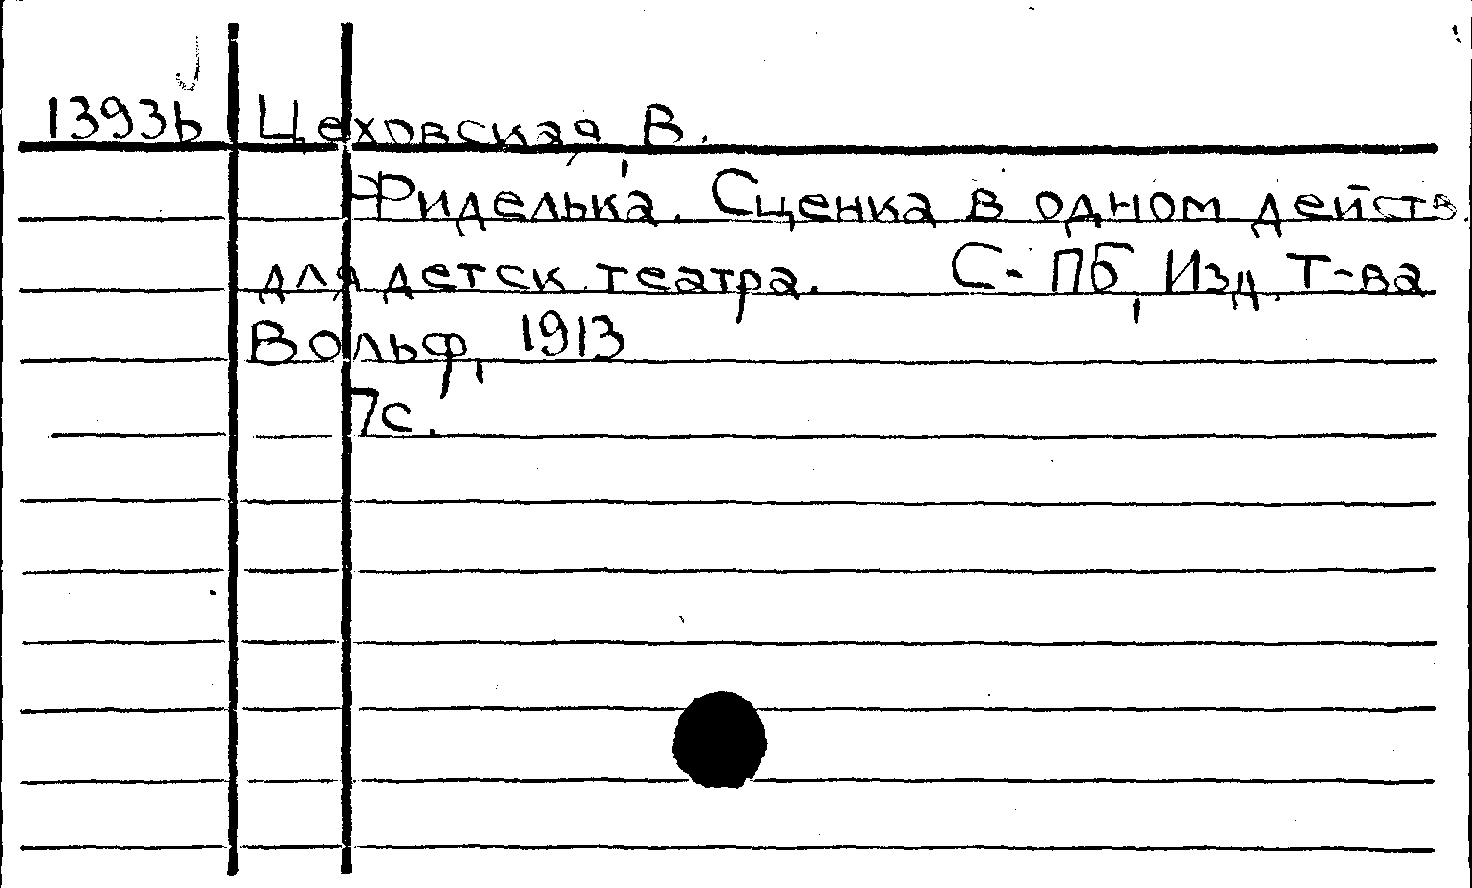 1393b Цеховская, В.
Фиделька. Сценка в одном действ.
для детск. театра. С-Пб, Изд. Т-ва
Вольф, 1913
7с.